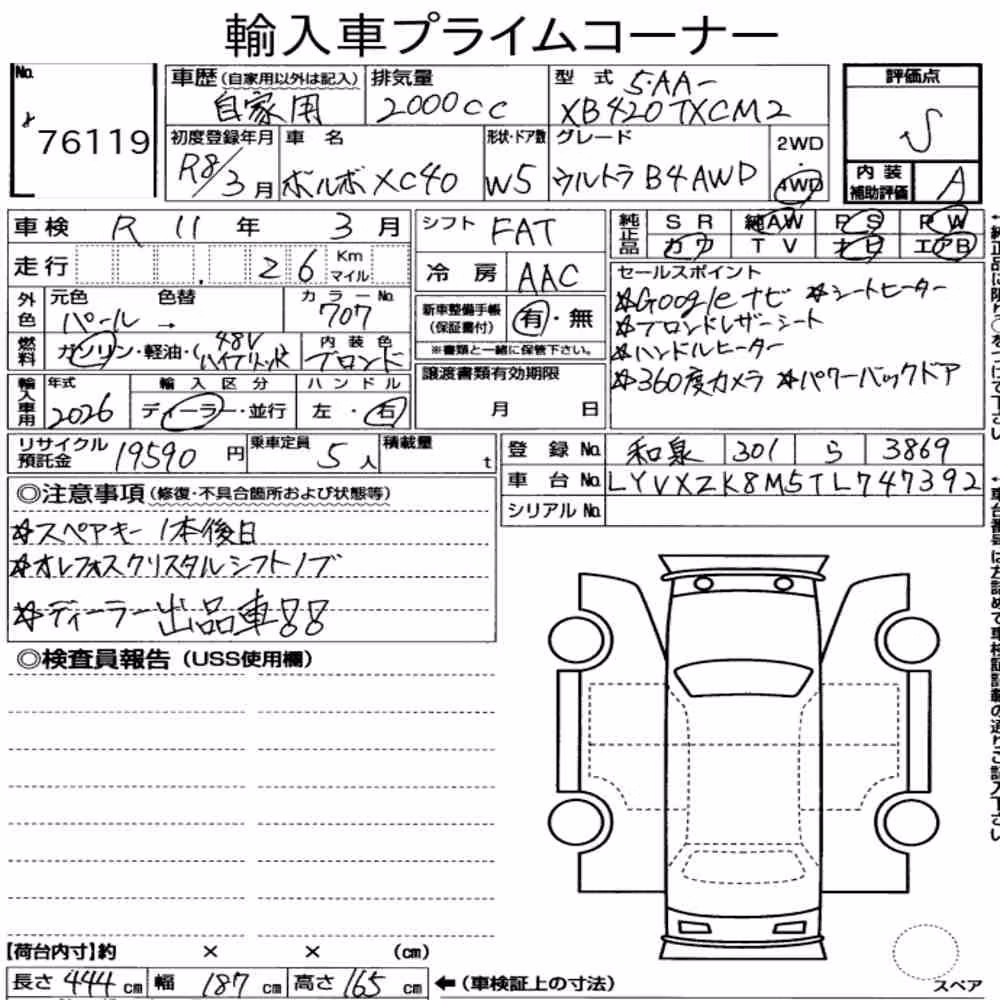 輸入車プライムコーナー
No. 76119
車歴(自家用以外は記入) 自家用
排気量 2000cc
型式 5AA-XB420TXCM2
評価点 S
初度登録年月 R8/3月
車名 ボルボ XC40
形状・ドア数 W5
グレード ウルトラ B4 AWD
2WD
・
4WD
内装補助評価 A
車検 R 11年 3月
シフト FAT
純正品 SR 純AW PS PW
カワ TV ナビ エアB
走行 26 Km マイル
冷房 AAC
外色 元色 パール → 色替 カラーNo. 707
新車整備手帳(保証書付) 有・無
※書類と一緒に保管下さい。
燃料 ガソリン・軽油・(48Vハイブリッド
内装色 ブロンド
セールスポイント
☆Googleナビ ☆シートヒーター
☆ブロンドレザーシート
☆ハンドルヒーター
☆360度カメラ ☆パワーバックドア
輸入車用 年式 2026
輸入区分 ディーラー・並行
ハンドル 左・右
譲渡書類有効期限
月 日
リサイクル預託金 19590円
乗車定員 5人
積載量 t
登録No. 和泉 301 ら 3869
車台No. LYVXZK8M5TL747392
シリアルNo.
◎注意事項(修復・不具合箇所および状態等)
☆スペアキー1本後日
☆オレフォスクリスタルシフトノブ
☆ディーラー出品車!!
◎検査員報告(USS使用欄)
【荷台内寸】約 × × (cm)
長さ 444cm 幅 187cm 高さ 165cm
←(車検証上の寸法)
スペア